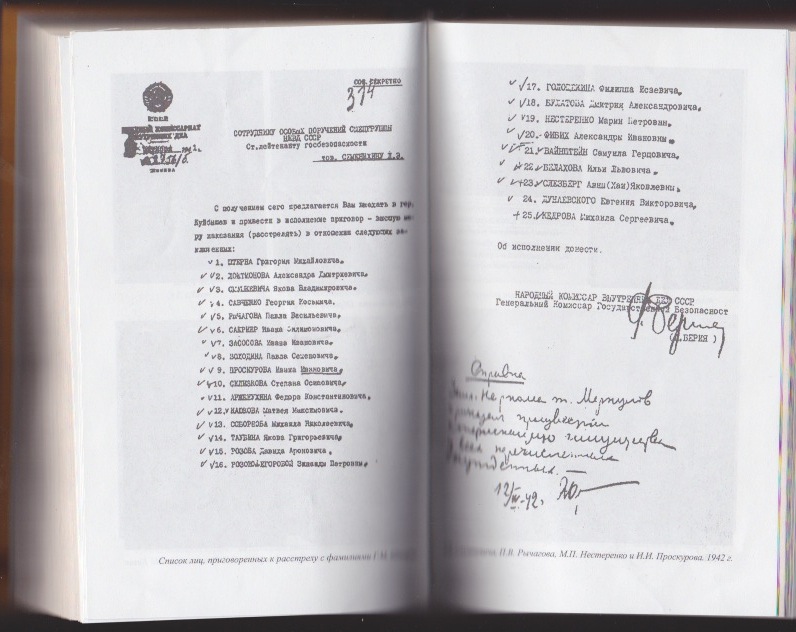 СОВ. СЕКРЕТНО
374
СССР
НАРОДНЫЙ КОМИССАРИАТ
ВНУТРЕННИХ ДЕЛ
Москва
СОТРУДНИКУ ОСОБЫХ ПОРУЧЕНИЙ СПЕЦГРУППЫ
НКВД СССР
Ст.лейтенанту госбезопасности
тов. СЕМЕНИХИНУ Д.Э.
С получением сего предлагается Вам выехать в гор.
Куйбышев и привести в исполнение приговор – высшую ме-
ру наказания (расстрелять) в отношении следующих за-
ключенных:
1. ШТЕРНА Григория Михайловича.
2. ЛОКТИОНОВА Александра Дмитриевича.
3. СМУШКЕВИЧА Якова Владимировича.
4. САВЧЕНКО Георгия Косьмича.
5. РЫЧАГОВА Павла Васильевича.
6. САКРИЕР Ивана Филимоновича.
7. ЗАСОСОВА Ивана Ивановича.
8. ВОЛОДИНА Павла Семеновича.
9. ПРОСКУРОВА Ивана Ивановича.
10. СКЛИЗКОВА Степана Осиповича.
11. АРЖЕНУХИНА Федора Константиновича.
12. КАЮКОВА Матвея Максимовича.
13. СОБОРНОВА Михаила Николаевича.
14. ТАУБИНА Якова Григорьевича.
15. РОЗОВА Давида Ароновича.
16. РОЗОВОЙ-ЕГОРОВОЙ Зинаиды Петровны.
Список лиц, приговоренных к расстрелу с фамилиями Г.М.
17. ГОЛОЩЕКИНА Филиппа Исаевича.
18. БУЛАТОВА Дмитрия Александровича.
19. НЕСТЕРЕНКО Марии Петровны.
20. ФИБИХ Александры Ивановны.
21. ВАЙНШТЕЙН Самуила Герцовича.
22. БЕЛАХОВА Ильи Львовича.
23. СЛЕЗБЕРГ Анны (Хаи) Яковлевны.
24. ДУНАЕВСКОГО Евгения Викторовича.
25. КЕДРОВА Михаила Сергеевича.
Об исполнении донести.
НАРОДНЫЙ КОМИССАР ВНУТРЕННИХ ДЕЛ СССР
Генеральный Комиссар Государственной Безопасност
(Л.БЕРИЯ)
Справка
Наркома т. Меркулов
приказал произвести
конфискацию имущества
у всех перечисленных
осужденных. —
12/IV-42.
П.В. Рычагова, М.П. Нестеренко и И.И. Проскурова. 1942 г.